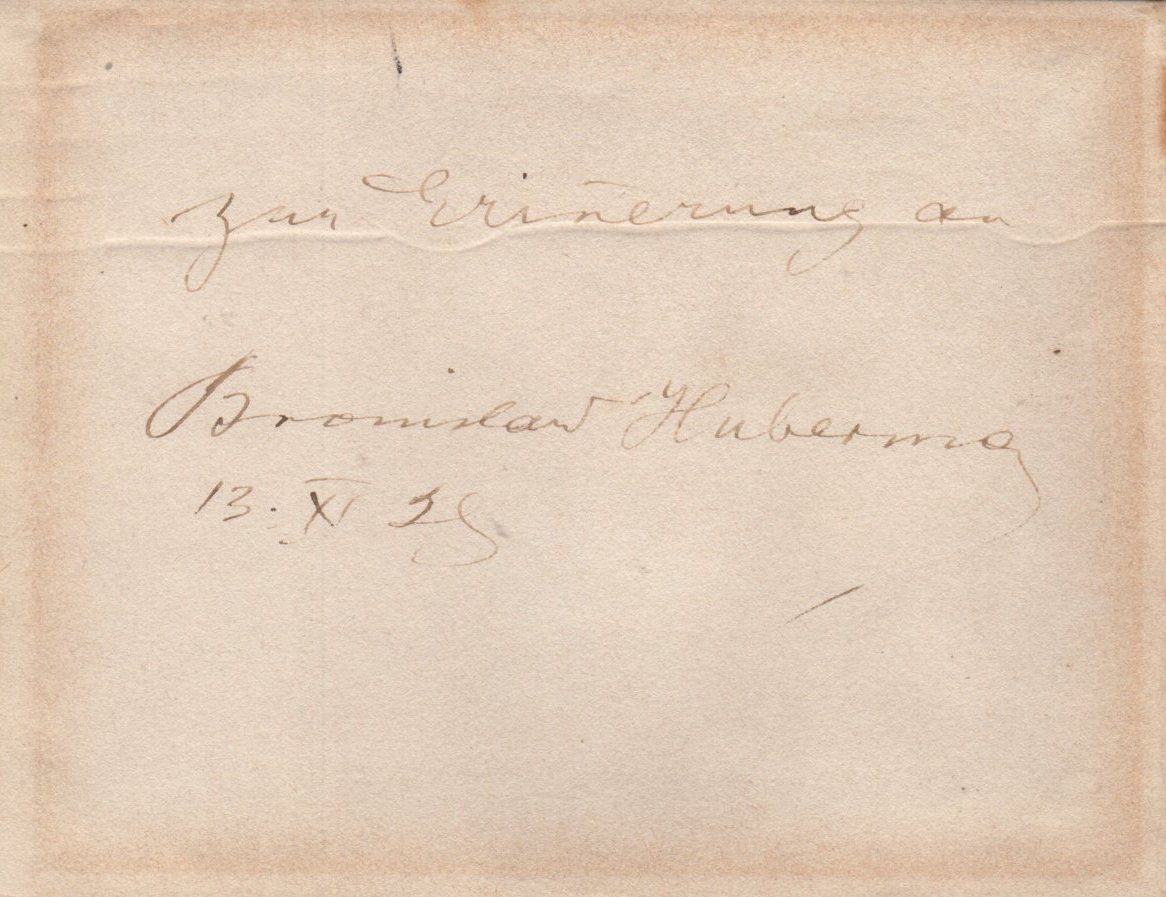 Zur Erin̄erung an
Bronislaw Huberman
13. XI 29